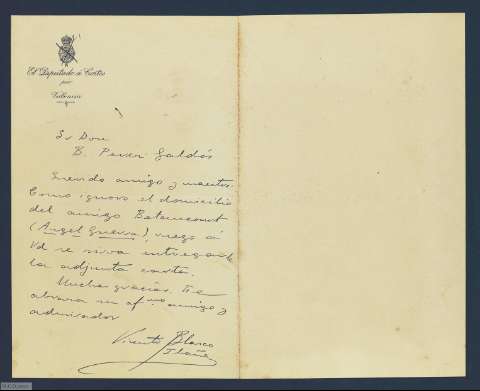 El Diputado á Cortes
por
Valencia
Sr Don
B. Perez Galdós
Querido amigo y maestro:
Como ignoro el domicilio
del amigo Betancourt
(Angel Guerra), ruego á
Vd se sirva entregarle
la adjunta carta.
Muchas gracias. Le
abraza su afmo amigo y
admirador
Vicente Blasco
Ibañez